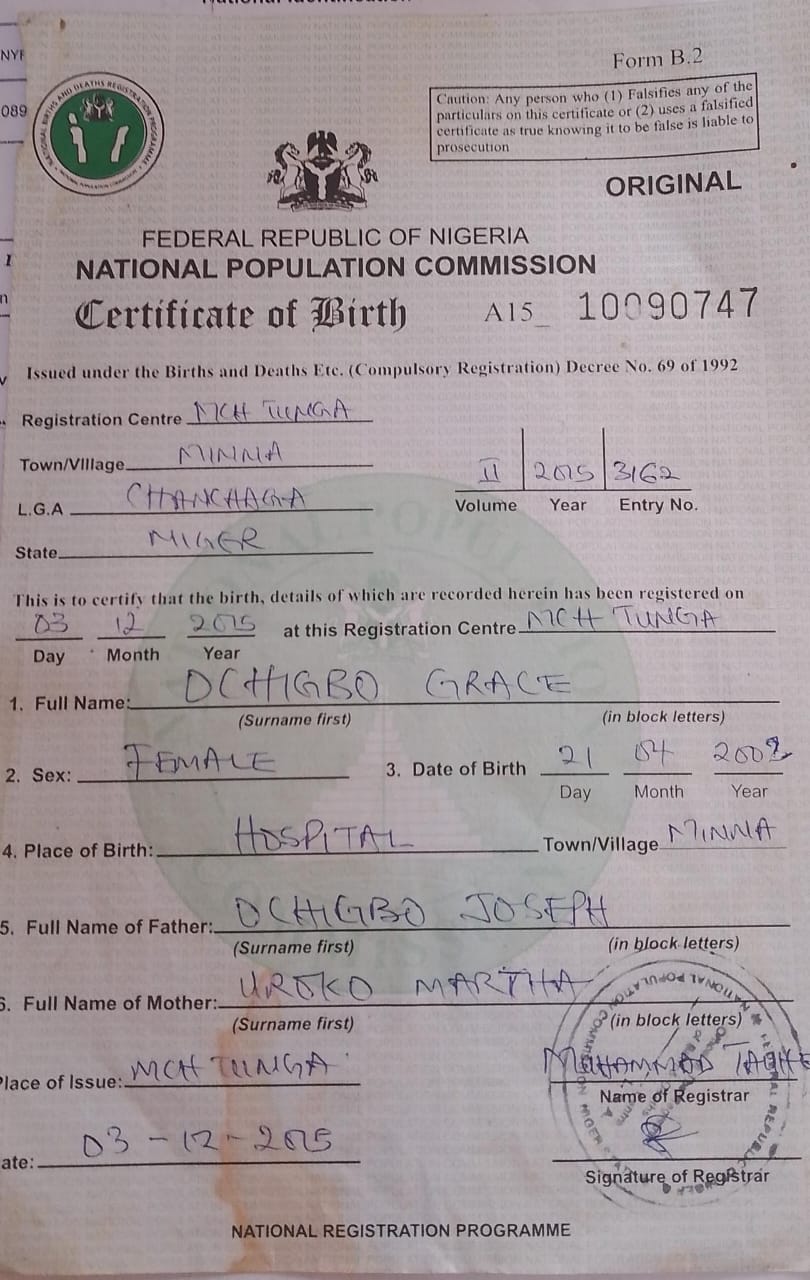 NYF
089
Form B.2
Caution: Any person who (1) Falsifies any of the
particulars on this certificate or (2) uses a falsified
certificate as true knowing it to be false is liable to
prosecution
NATIONAL BIRTHS AND DEATHS REGISTRATION PROGRAMME
NATIONAL POPULATION COMMISSION
ORIGINAL
FEDERAL REPUBLIC OF NIGERIA
NATIONAL POPULATION COMMISSION
Certificate of Birth A15_ 10090747
Issued under the Births and Deaths Etc. (Compulsory Registration) Decree No. 69 of 1992
Registration Centre MCH TUNGA
Town/Village MINNA
L.G.A CHANCHAGA
II 2015 3162
Volume Year Entry No.
State MIGER
This is to certify that the birth, details of which are recorded herein has been registered on
03 12 2015 at this Registration Centre MCH TUNGA
Day Month Year
1. Full Name: OCHIGBO GRACE
(Surname first) (in block letters)
2. Sex: FEMALE 3. Date of Birth 21 04
Day Month Year
4. Place of Birth: HOSPITAL Town/Village MINNA
5. Full Name of Father: OCHIGBO JOSEPH
(Surname first) (in block letters)
6. Full Name of Mother: UROKO MARTHA
(Surname first) (in block letters)
Place of Issue: MCH TUNGA
MUHAMMAD
Name of Registrar
ate: 03-12-2015
Signature of Registrar
NATIONAL REGISTRATION PROGRAMME